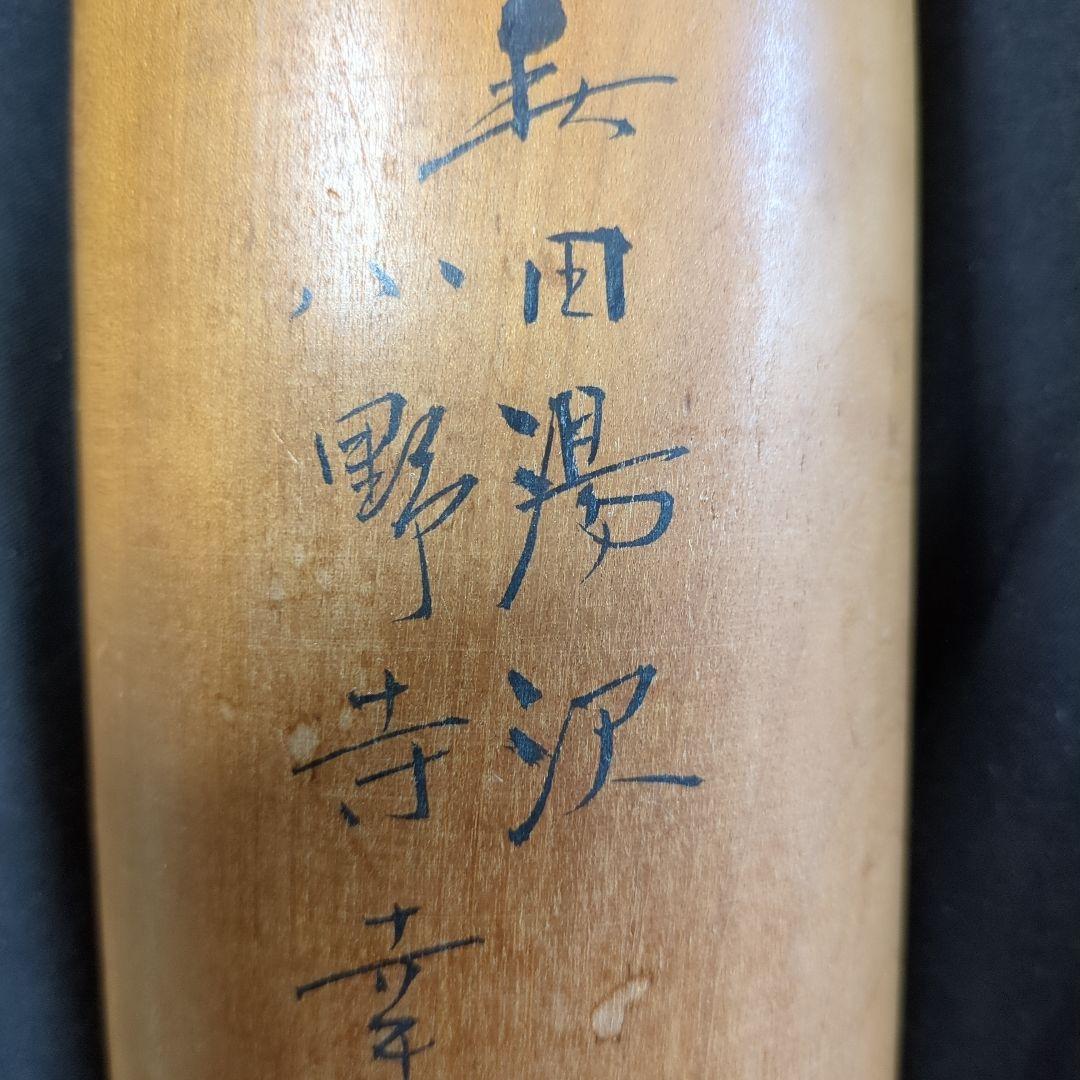 秋田湯沢
小野寺幸